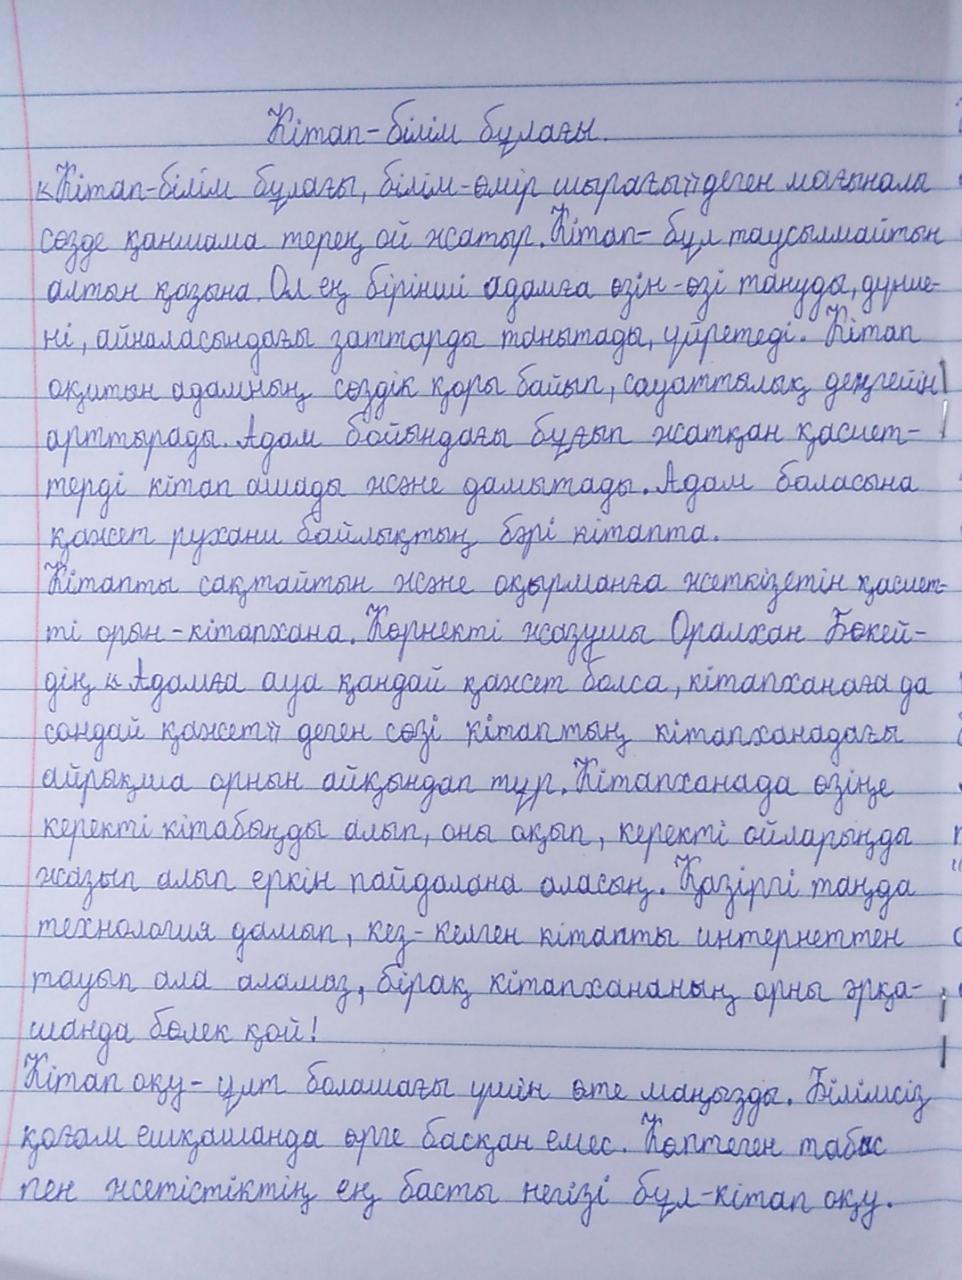 Кітап-білім бұлағы.
«Кітап-білім бұлағы, білім-өмір шырағы" деген мағыналы
сөзде қаншама терең ой жатыр. Кітап- бұл таусылмайтын
алтын қазына. Ол ең бірінші адамға өзін-өзі тануды, дүние-
ні, айналасындағы заттарды танытады, үйретеді. Кітап
оқитын адамның сөздік қоры байып, сауаттылық деңгейін
арттырады. Адам бойындағы бұғып жатқан қасиет-
терді кітап ашады және дамытады. Адам баласына
қажет рухани байлықтың бәрі кітапта.
Кітапты сақтайтын және оқырманға жеткізетін қасиет-
ті орын-кітапхана. Көрнекті жазушы Оралхан Бөкей-
дің «Адамға ауа қандай қажет болса, кітапханаға да
сондай қажет" деген сөзі кітаптың кітапханадағы
айрықша орнын айқындап тұр. Кітапханада өзіңе
керекті кітабыңды алып, оны оқып, керекті ойларыңды
жазып алып еркін пайдалана аласың. Қазіргі таңда
технология дамып, кез-келген кітапты интернеттен
тауып ала аламыз, бірақ кітапхананың орны әрқа-
шанда бөлек қой!
Кітап оқу- ұлт болашағы үшін өте маңызды. Білімсіз
қоғам ешқашанда өрге басқан емес. Көптеген табыс
пен жетістіктің ең басты негізі бұл-кітап оқу.